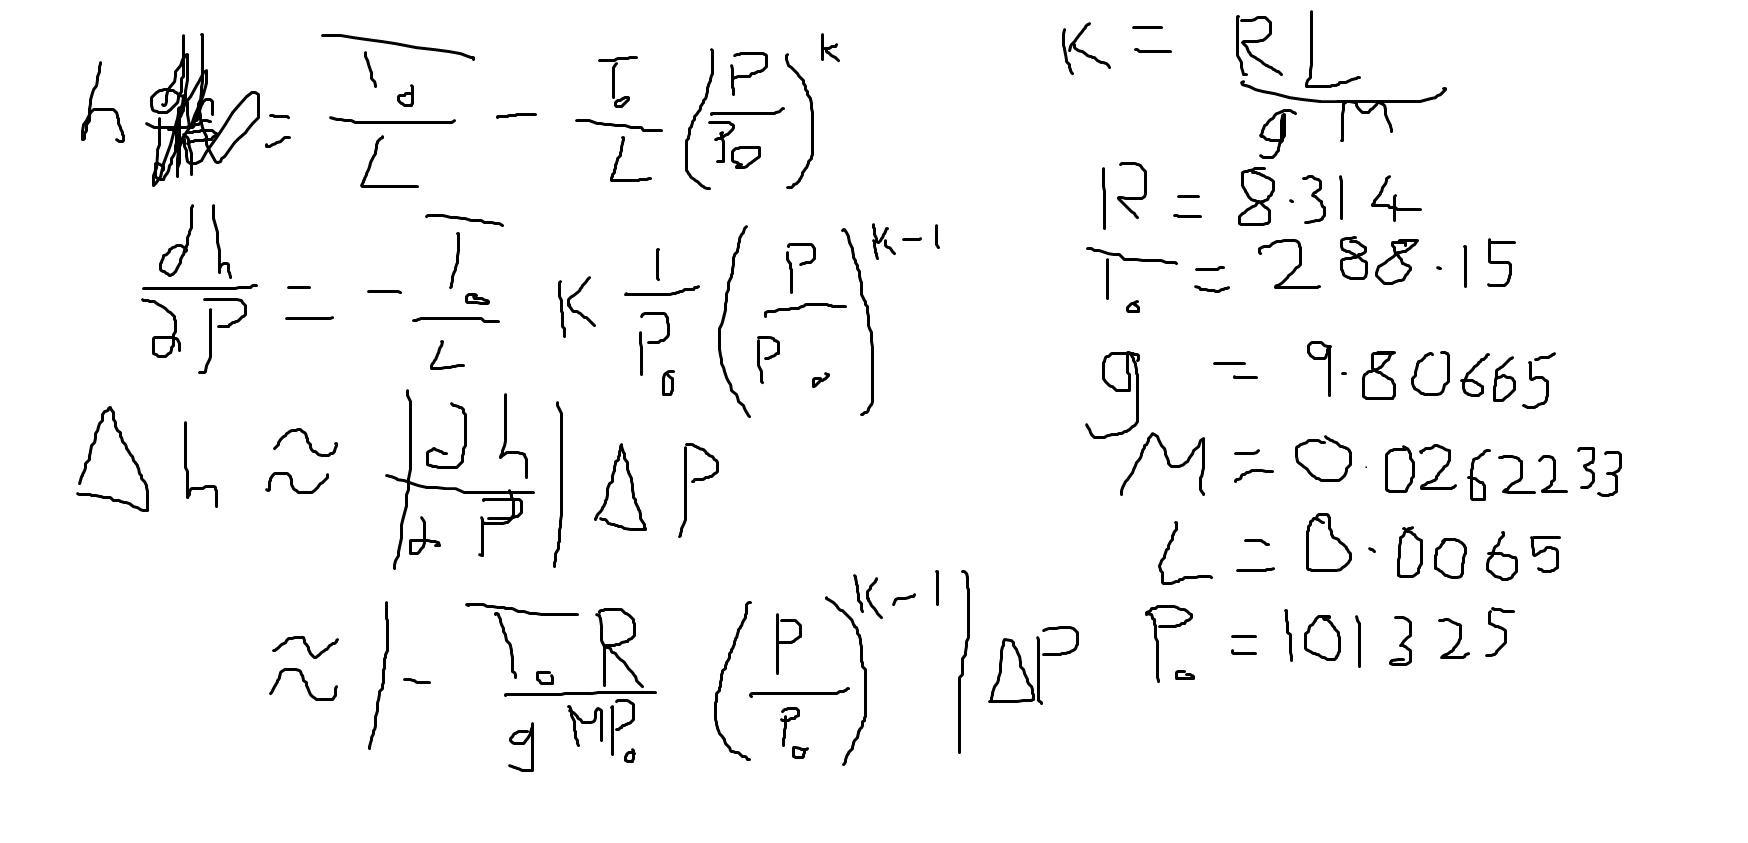 h = T₀/L - T₀/L (P/P₀)^k
dh/dP = - T₀/L K 1/P₀ (P/P₀)^(K-1)
Δh ≈ |dh/dP| ΔP
≈ |- T₀R/gMP₀ (P/P₀)^(K-1)| ΔP
K = RL/gM
R = 8.314
T₀ = 288.15
g = 9.80665
M = 0.0262233
L = 0.0065
P₀ = 101325